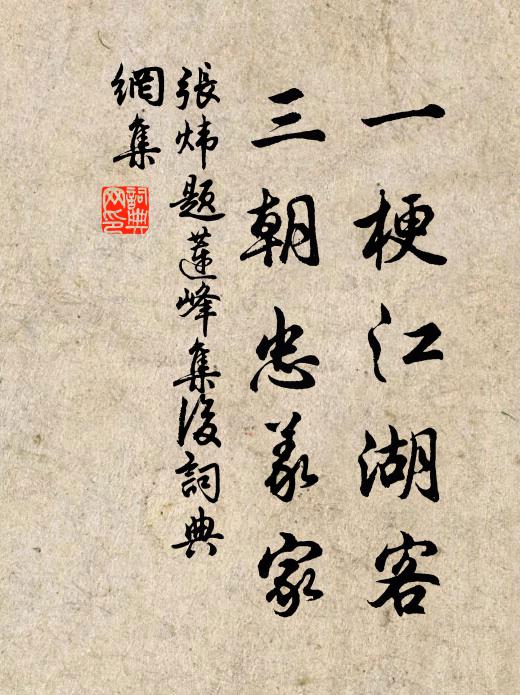 一梗江湖客
三朝忠義家
張煒題蓮峰集後詞典
網集
詞典
网印